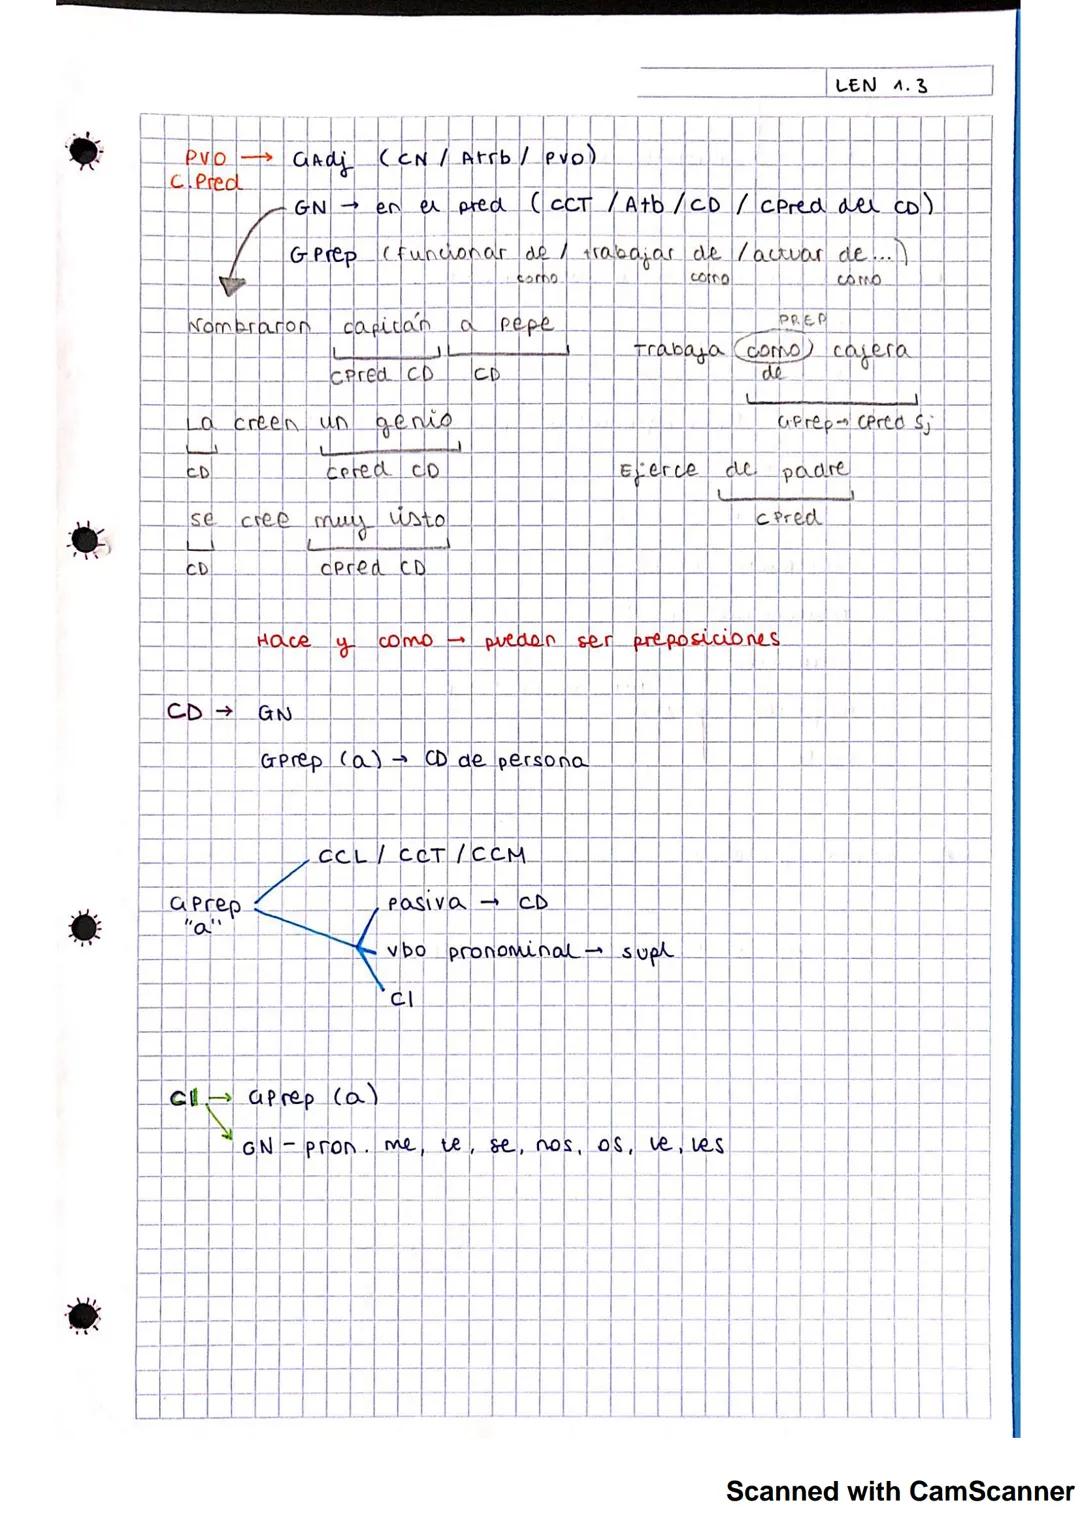 LEN 1.3
PVO → GAdj (CN / Atrb / PVO)
C.Pred
GN → en el pred (CCT / Atb / CD / CPred del CD)
GPrep (funcionar de / trabajar de / actuar de...)
como como como
Nombraron capitán a Pepe
CPred CD CD
PREP
Trabaja como cajera
de
GPrep → CPred Sj
La creen un genio
CD CPred CD
Ejerce de padre
CPred
se cree muy listo
CD CPred CD
Hace y como → pueden ser preposiciones
CD → GN
GPrep (a) → CD de persona
CCL / CCT / CCM
GPrep
"a"
pasiva → CD
vbo pronominal → supl
CI
CI → GPrep (a)
GN - pron. me, te, se, nos, os, le, les
Scanned with CamScanner